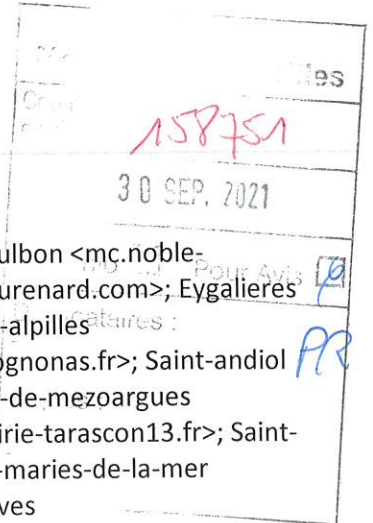 les
158751
30 SEP. 2021
Pour Avis
ulbon <mc.noble-
urenard.com>; Eygalieres
-alpilles
cataires :
ognonas.fr>; Saint-andiol
PR
-de-mezoargues
irie-tarascon13.fr>; Saint-
-maries-de-la-mer
ves